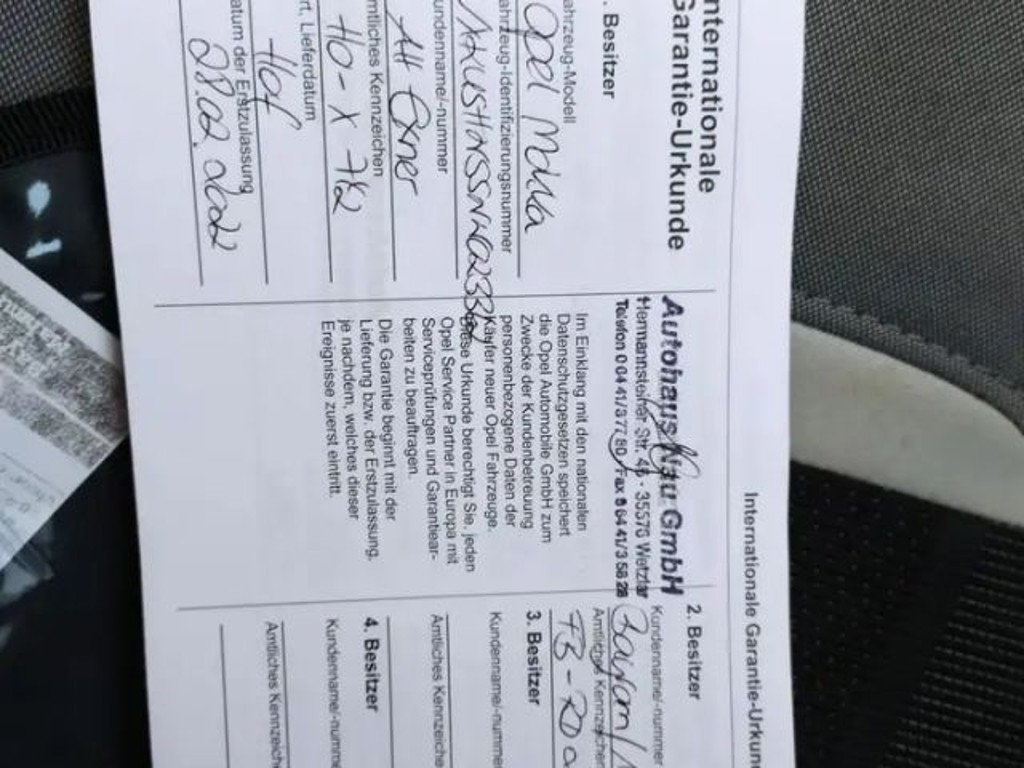 Internationale Garantie-Urkun
nternationale
Garantie-Urkunde
. Besitzer
ahrzeug-Modell
Opel Mokka
ahrzeug-Identifizierungsnummer
undenname/-nummer
AH Exner
mtliches Kennzeichen
HO-X 762
rt, Lieferdatum
Hof
atum der Erstzulassung
28.02.2022
Autohaus Nau GmbH
Hermannsteiner Str. 48 · 35576 Wetzlar
Telefon 0 64 41/3 77 80 / Fax 0 64 41/3 58 28
Im Einklang mit den nationalen
Datenschutzgesetzen speichert
die Opel Automobile GmbH zum
Zwecke der Kundenbetreuung
personenbezogene Daten der
Käufer neuer Opel Fahrzeuge.
Diese Urkunde berechtigt Sie, jeden
Opel Service Partner in Europa mit
Serviceprüfungen und Garantiear-
beiten zu beauftragen.
Die Garantie beginnt mit der
Lieferung bzw. der Erstzulassung,
je nachdem, welches dieser
Ereignisse zuerst eintritt.
2. Besitzer
Kundenname/-nummer
Amtliches Kennzeichen
FB-RD
3. Besitzer
Kundenname/-nummer
Amtliches Kennzeiche
4. Besitzer
Kundenname/-numme
Amtliches Kennzeiche